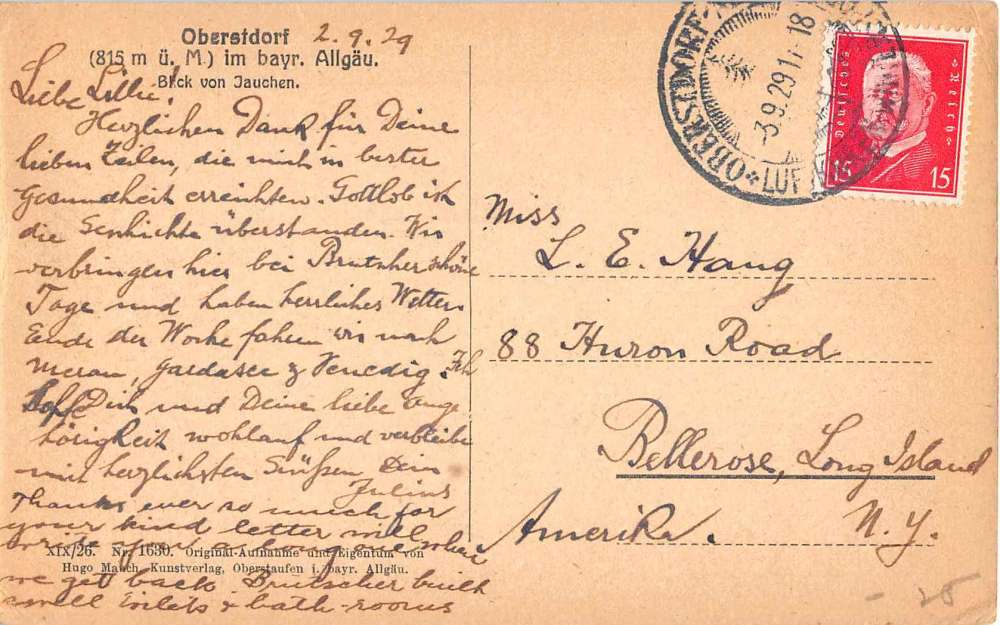 Oberstdorf 2.9.29
(815 m ü. M.) im bayr. Allgäu.
Blick von Jauchen.
Liebe Lillie!
Herzlichen Dank für Deine
lieben Zeilen, die mich in bester
Gesundheit erreichten. Gottlob ist
die Geschichte überstanden. Wir
verbringen hier bei Brutscher schöne
Tage und haben herrliches Wetter.
Ende der Woche fahren wir nach
Meran, Gardasee & Venedig. Ich
hoffe Dich und Deine liebe Ange
hörigkeit wohlauf und verbleibe
mit herzlichsten Grüßen Dein
Julius
Thanks ever so much for
your kind letter will
write you a long one when
we get back Brutscher built
well toilets & bath-rooms
XIX/26. Nr. 1630. Original-Aufnahme und Eigentum von
Hugo Kunstverlag, Oberstaufen i. bayr. Allgäu.
OBERSTDORF
3.9.29 17-18
LUF
Deutsches Reich
15 15
Miss
L. E. Hang
88 Huron Road
Bellerose, Long Island
Amerika. N.Y.
25